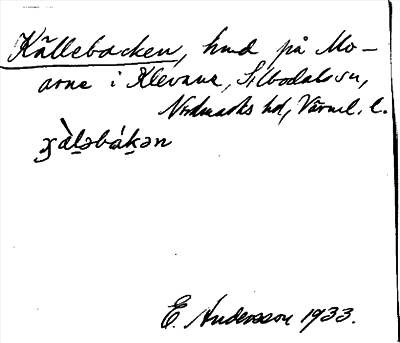 Källebacken, hmd på Mo-
arne i Klevane, Silbodals sn,
Nordmarks hd, Värml. l.
ɣàḷəbákən
E. Andersson 1933.